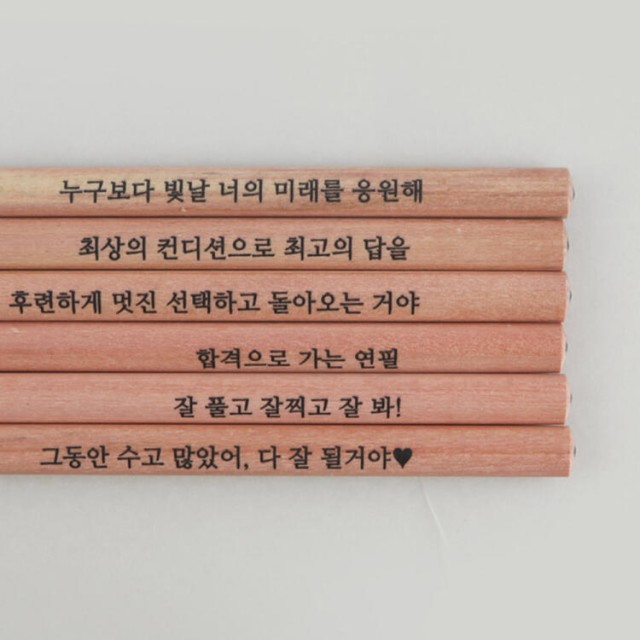 누구보다 빛날 너의 미래를 응원해
최상의 컨디션으로 최고의 답을
후련하게 멋진 선택하고 돌아오는 거야
합격으로 가는 연필
잘 풀고 잘찍고 잘 봐!
그동안 수고 많았어, 다 잘 될거야♥